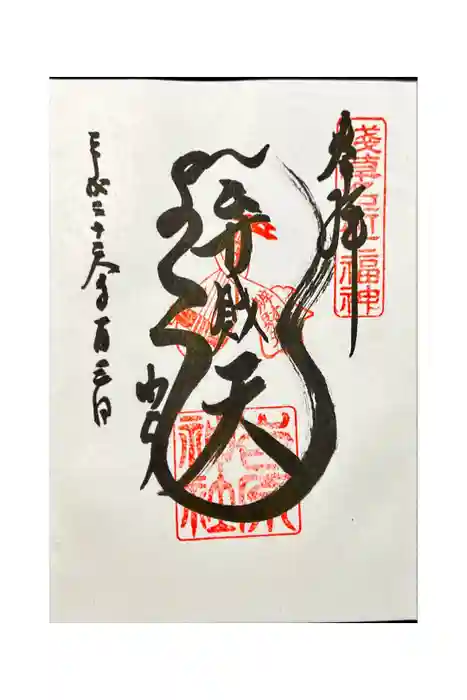 淺草名所七福神
奉拝
弁財天
吉原神社
平成二十三年一月三日